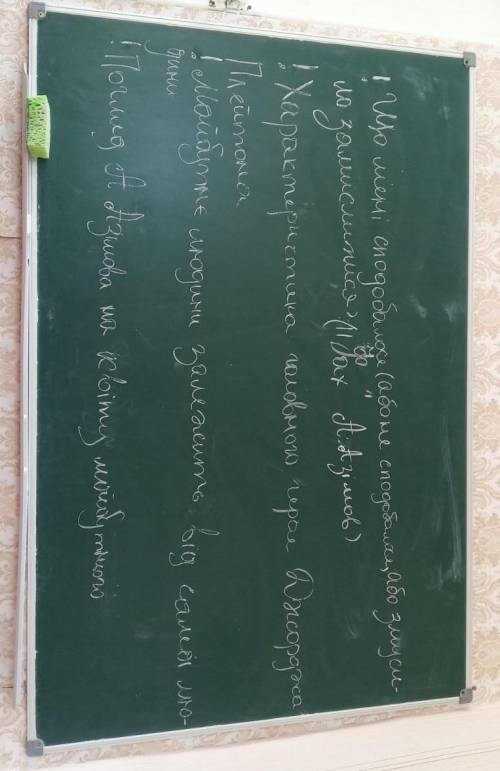 ! Що мені сподобалося (або не сподобалося, або змуси-
ло замислитися) ("Фах" А. Азімов)
! Характеристика головного героя Джорджа
Плейтона
! Майбутнє людини залежить від самої лю-
дини
! Погляд А. Азімова на освіту майбутнього